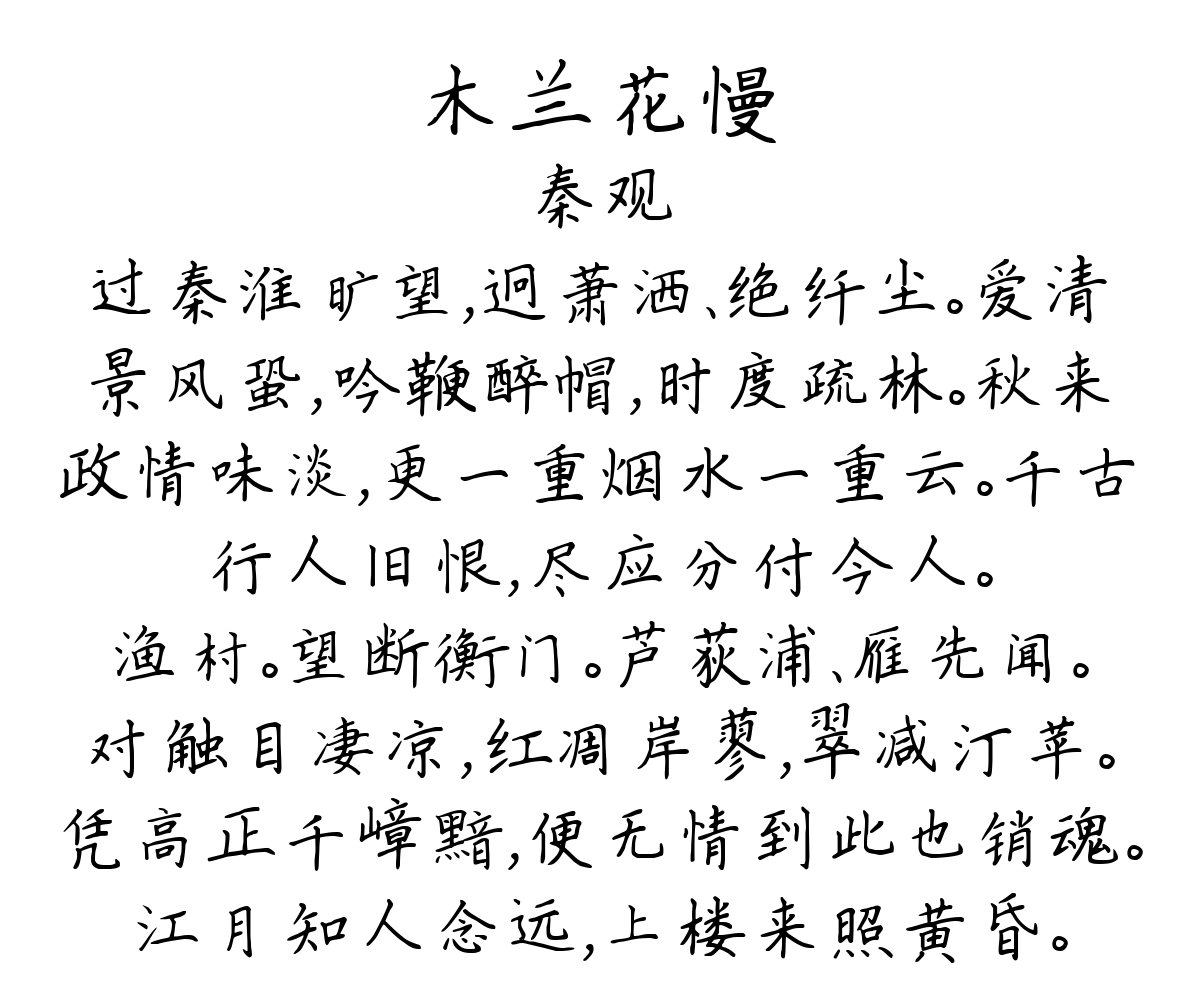 木兰花慢
秦观
过秦淮旷望,迥萧洒、绝纤尘。爱清
景风蛩,吟鞭醉帽,时度疏林。秋来
政情味淡,更一重烟水一重云。千古
行人旧恨,尽应分付今人。
渔村。望断衡门。芦荻浦、雁先闻。
对触目凄凉,红凋岸蓼,翠减汀苹。
凭高正千嶂黯,便无情到此也销魂。
江月知人念远,上楼来照黄昏。